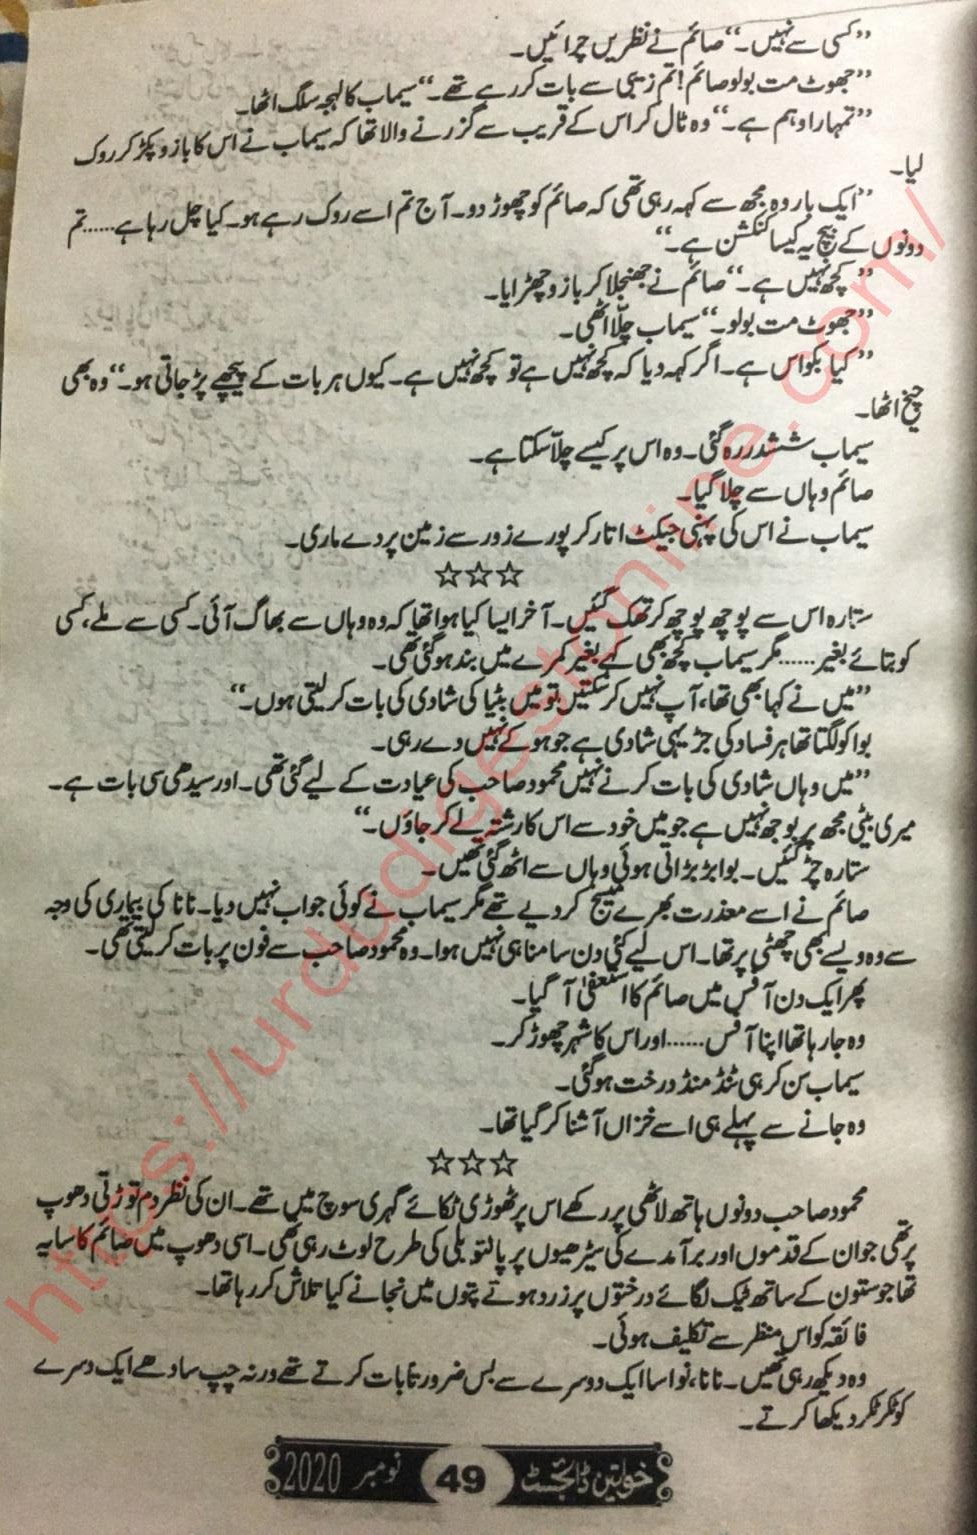 ”کسی سے نہیں۔“ صائم نے نظریں چرائیں۔
”جھوٹ مت بولو صائم! تم زیبی سے بات کر رہے تھے۔“ سیماب کا لہجہ سلگ اٹھا۔
”تمہارا وہم ہے۔“ وہ ٹال کر اس کے قریب سے گزرنے والا تھا کہ سیماب نے اس کا بازو پکڑ کر روک
لیا۔
”ایک بار وہ مجھ سے کہہ رہی تھی کہ صائم کو چھوڑ دو۔ آج تم اسے روک رہے ہو۔ کیا چل رہا ہے...... تم
دونوں کے بیچ یہ کیسا کنکشن ہے۔“
”کچھ نہیں ہے۔“ صائم نے جھنجلا کر بازو چھڑایا۔
”جھوٹ مت بولو۔“ سیماب چلّا اٹھی۔
”کیا بکواس ہے۔ اگر کہہ دیا کہ کچھ نہیں ہے تو کچھ نہیں ہے۔ کیوں ہر بات کے پیچھے پڑ جاتی ہو۔“ وہ بھی
چیخ اٹھا۔
سیماب ششدر رہ گئی۔ وہ اس پر کیسے چلّا سکتا ہے۔
صائم وہاں سے چلا گیا۔
سیماب نے اس کی پہنی جیکٹ اتار کر پورے زور سے زمین پر دے ماری۔
☆☆☆
ستارہ اس سے پوچھ پوچھ کر تھک گئیں۔ آخر ایسا کیا ہوا تھا کہ وہ وہاں سے بھاگ آئی۔ کسی سے ملے، کسی
کو بتائے بغیر...... مگر سیماب کچھ بھی کہے بغیر کمرے میں بند ہو گئی تھی۔
”میں نے کہا بھی تھا، آپ نہیں کر سکتیں تو میں بٹیا کی شادی کی بات کر لیتی ہوں۔“
بوا کو لگتا تھا ہر فساد کی جڑ یہی شادی ہے جو ہو کے نہیں دے رہی۔
”میں وہاں شادی کی بات کرنے نہیں محمود صاحب کی عیادت کے لیے گئی تھی۔ اور سیدھی سی بات ہے۔
میری بیٹی مجھ پر بوجھ نہیں ہے جو میں خود سے اس کا رشتہ لے کر جاؤں۔“
ستارہ چڑ گئیں۔ بوا بڑبڑاتی ہوئی وہاں سے اٹھ گئی تھیں۔
صائم نے اسے معذرت بھرے میسج کر دیے تھے مگر سیماب نے کوئی جواب نہیں دیا۔ نانا کی بیماری کی وجہ
سے وہ ویسے بھی چھٹی پر تھا۔ اس لیے کئی دن سامنا ہی نہیں ہوا۔ وہ محمود صاحب سے فون پر بات کر لیتی تھی۔
پھر ایک دن آفس میں صائم کا استعفیٰ آ گیا۔
وہ جا رہا تھا اپنا آفس...... اور اس کا شہر چھوڑ کر۔
سیماب سن کر ہی ٹنڈ منڈ درخت ہو گئی۔
وہ جانے سے پہلے ہی اسے خزاں آشنا کر گیا تھا۔
☆☆☆
محمود صاحب دونوں ہاتھ لاٹھی پر رکھے اس پر ٹھوڑی ٹکائے گہری سوچ میں تھے۔ ان کی نظر دم توڑتی دھوپ
پر تھی جو ان کے قدموں اور برآمدے کی سیڑھیوں پر پالتو بلی کی طرح لوٹ رہی تھی۔ اسی دھوپ میں صائم کا سایہ
تھا جو ستون کے ساتھ ٹیک لگائے درختوں پر زرد ہوتے پتوں میں نجانے کیا تلاش کر رہا تھا۔
فائقہ کو اس منظر سے تکلیف ہوئی۔
وہ دیکھ رہی تھیں۔ نانا، نواسا ایک دوسرے سے بس ضرورتاً بات کرتے تھے ورنہ چپ سادھے ایک دوسرے
کو ٹکر ٹکر دیکھا کرتے۔
خواتین ڈائجسٹ 49 نومبر 2020
https://urdudigestonline.com/